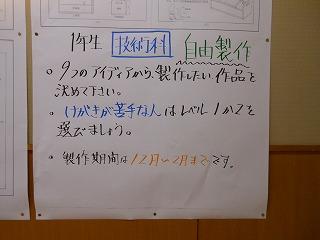 1年生 技術科 自由製作
○ 9つのアイディアから、製作したい作品を
決めて下さい。
• けがきが苦手な人はレベル1か2を
選びましょう。
• 製作期間は12月~2月までです。